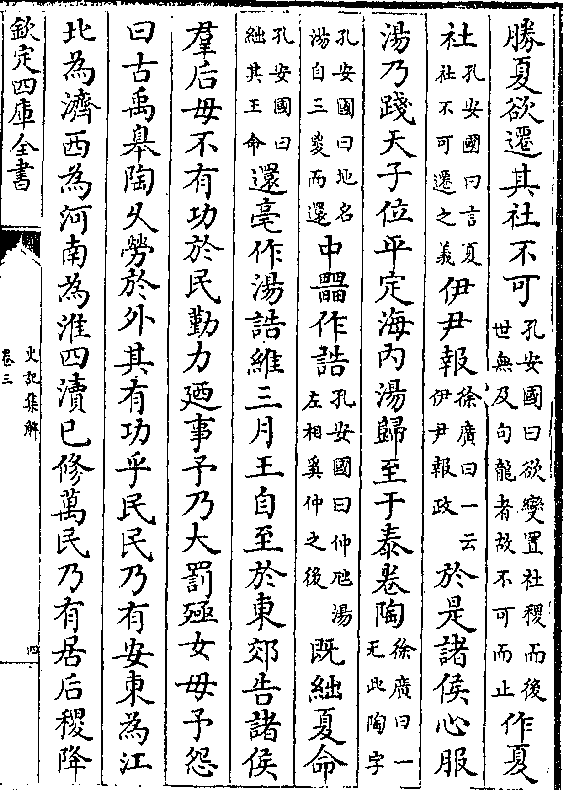 勝夏欲遷其社不可孔安國曰欲變置社稷而後
世無及句龍者故不可而止作夏
社孔安國曰言夏
社不可遷之義伊尹報徐廣曰一云
伊尹報政於是諸侯心服
湯乃踐天子位平定海内湯歸至于泰卷陶徐廣曰一
无此陶字
孔安國曰地名
湯自三㚇而還中作誥孔安國曰仲虺湯
左相奚仲之後既絀夏命
孔安國曰
絀其王命還亳作湯誥維三月王自至於東郊告諸侯
羣后毋不有功於民勤力廼事予乃大罰殛女毋予怨
曰古禹皋陶久勞於外其有功乎民民乃有安東為江
北為濟西為河南為淮四瀆已修萬民乃有居后稷降
欽定四庫全書
史記集解
卷三
四